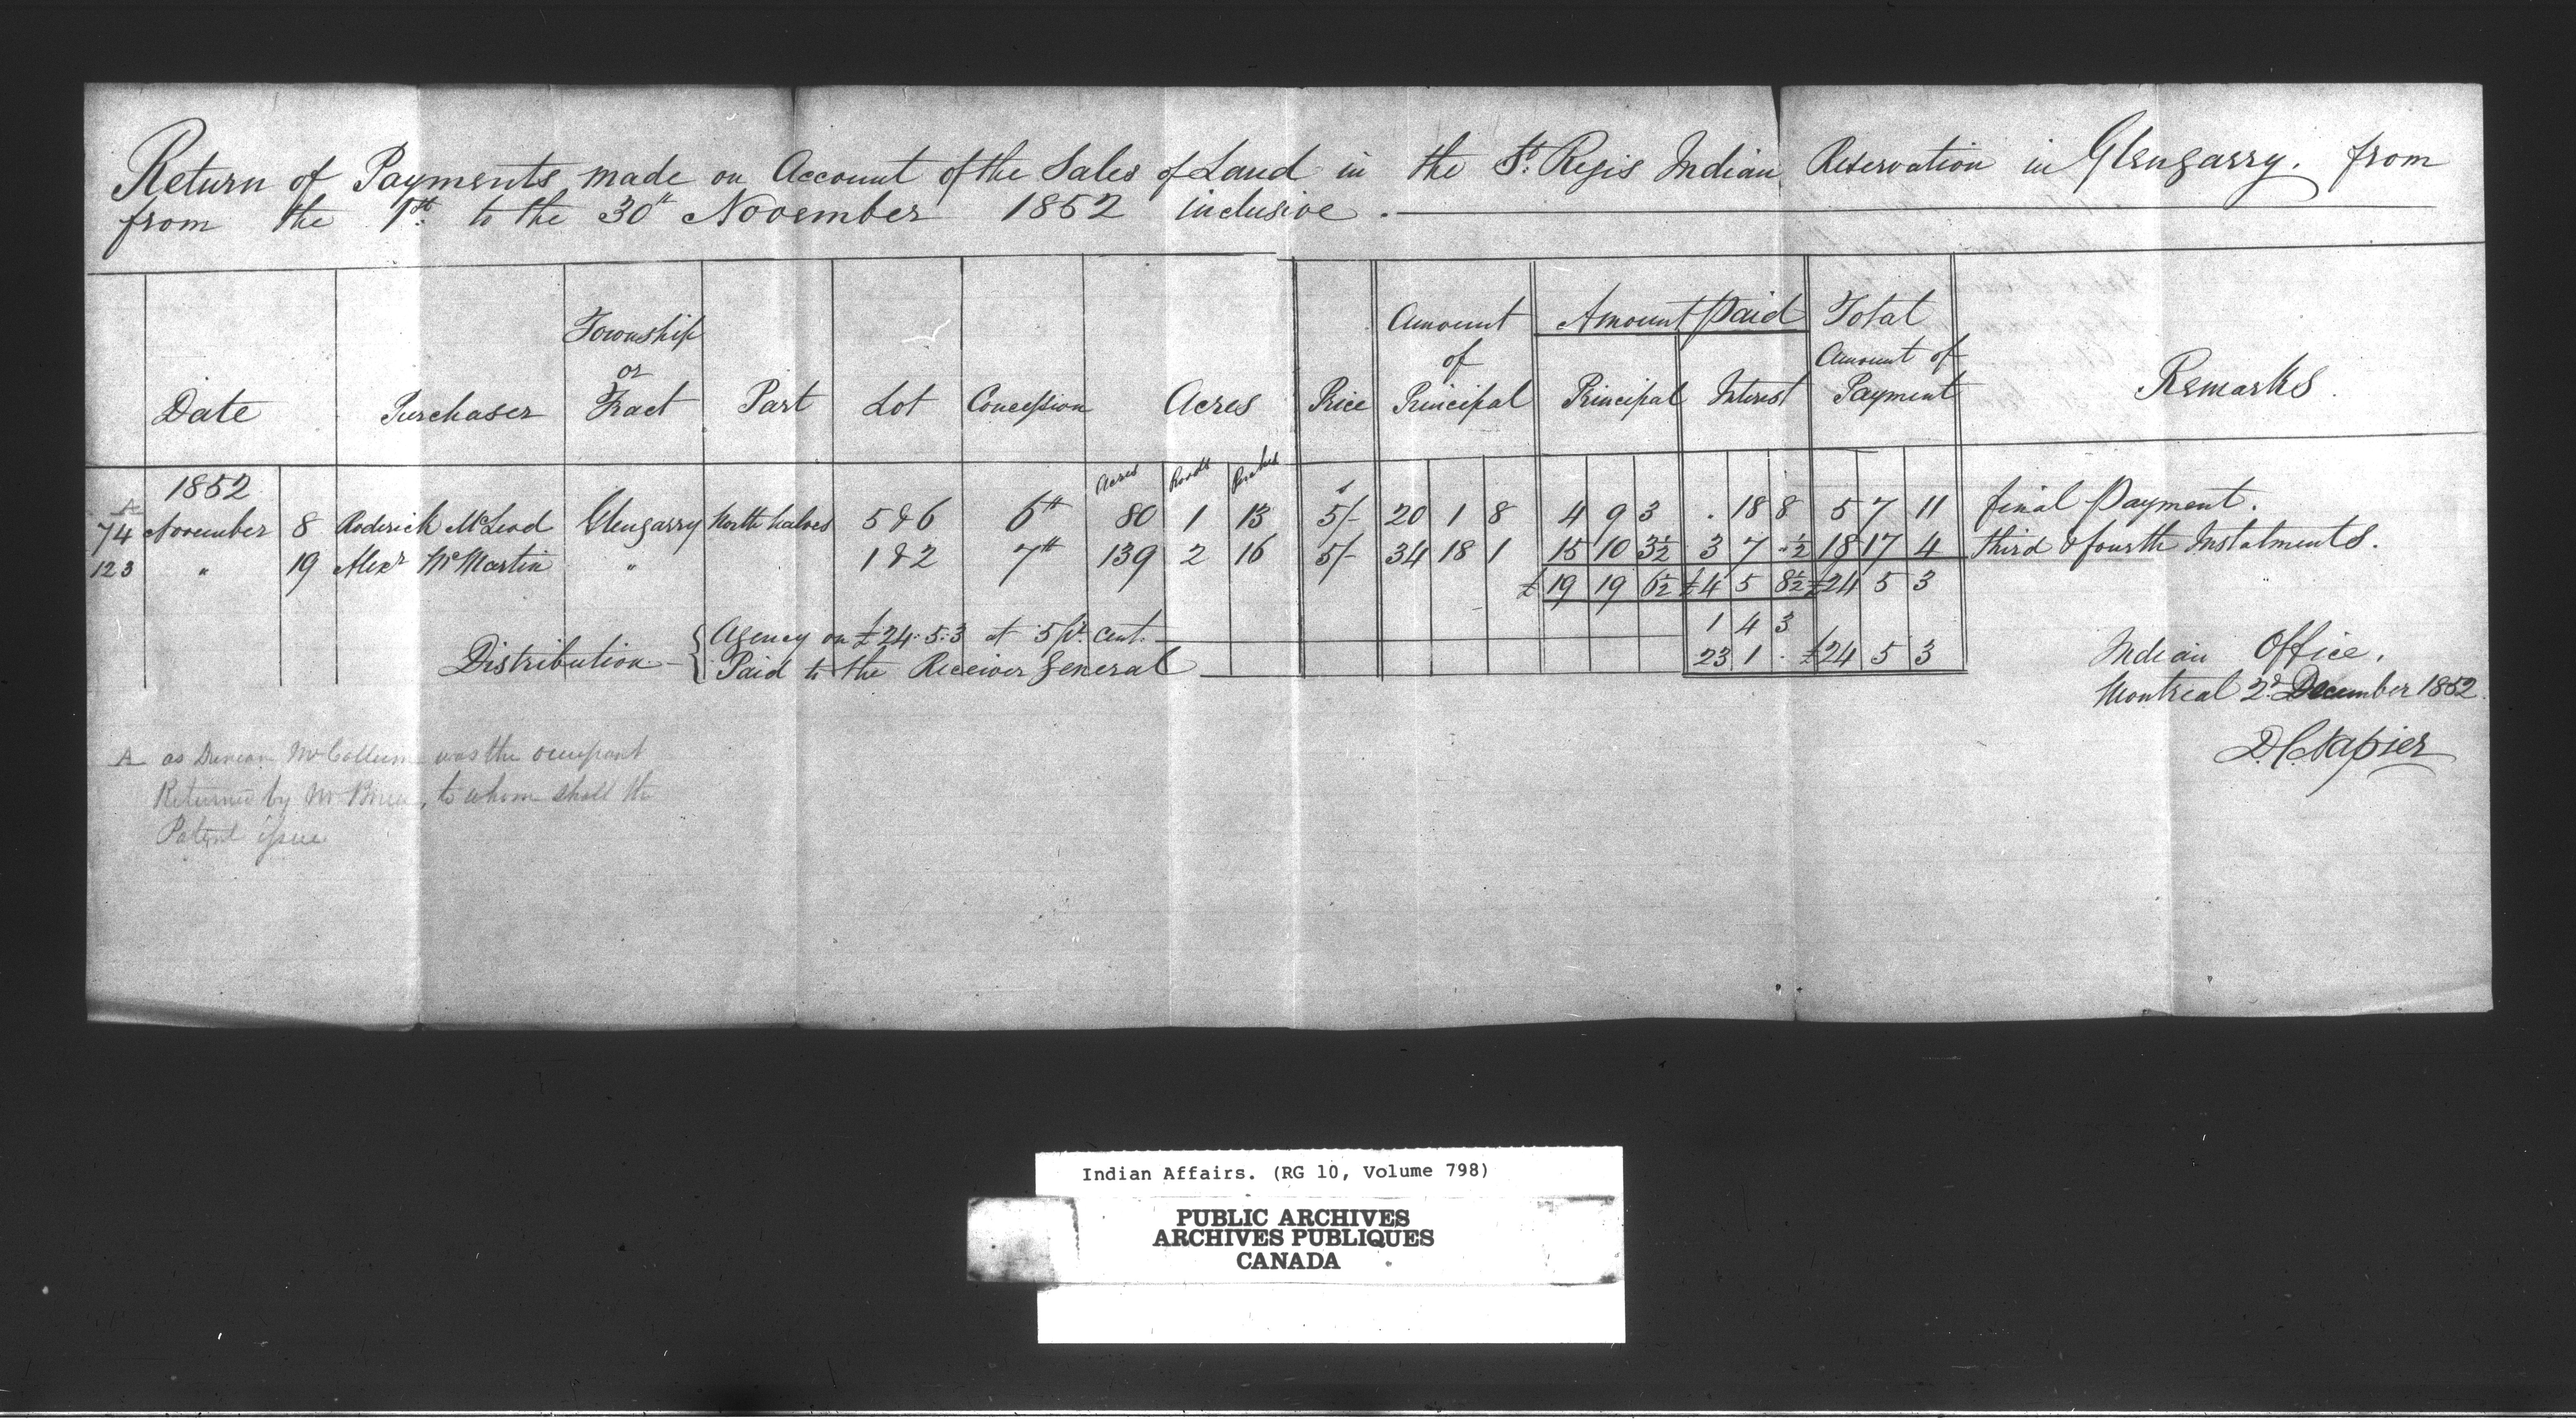 Return of Payments made on Account of the Sales of Land in the St. Regis Indian Reservation in Glengarry. from
from the 1st. to the 30th November 1852 inclusive.
Date Purchaser Township or Tract Part Lot Concession Acres Price Amount of Principal Amount Paid Principal Interest Total Amount of Payment Remarks.
1852 Acres Roods Perches s
A
74 November 8 Roderick McLeod Glengarry North halves 5 & 6 6th 80 1 13 5/- 20 1 8 4 9 3 . 18 8 5 7 11 final Payment.
123 " 19 Alexr McMartin " 1 & 2 7th 139 2 16 5/- 34 18 1 15 10 3½ 3 7 "½ 18 17 4 third & fourth Instalments.
£ 19 19 6½ £4 5 8½ £24 5 3
Distribution { Agency on £24.5.3 at 5 pr. cent. 1 4 3
Paid to the Receiver General 23 1 . £24 5 3
Indian Office.
Montreal 2d. December 1852.
D.C. Napier
A as Duncan McCollum was the occupant
Returned by Mr , to whom shall the
Patent issue
Indian Affairs. (RG 10, Volume 798)
PUBLIC ARCHIVES
ARCHIVES PUBLIQUES
CANADA